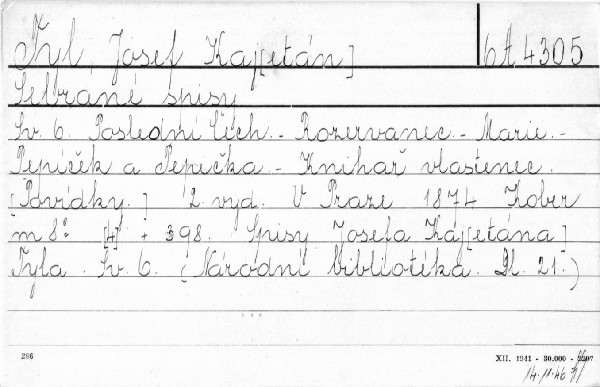 Tyl, Josef Kaj[etán] 6A 4305
Sebrané spisy
Sv. 6. Poslední Čech. - Rozervanec. - Marie. -
Pepíček a Pepička. - Knihař vlastenec.
[Povídky.] 2. vyd. V Praze 1874 Kober
m 8° [4] + 398. Spisy Josefa Kaj[etána]
Tyla. Sv. 6. (Národní bibliotéka. Dl. 21.)
286 XII. 1941 - 30.000 -
14.11.46